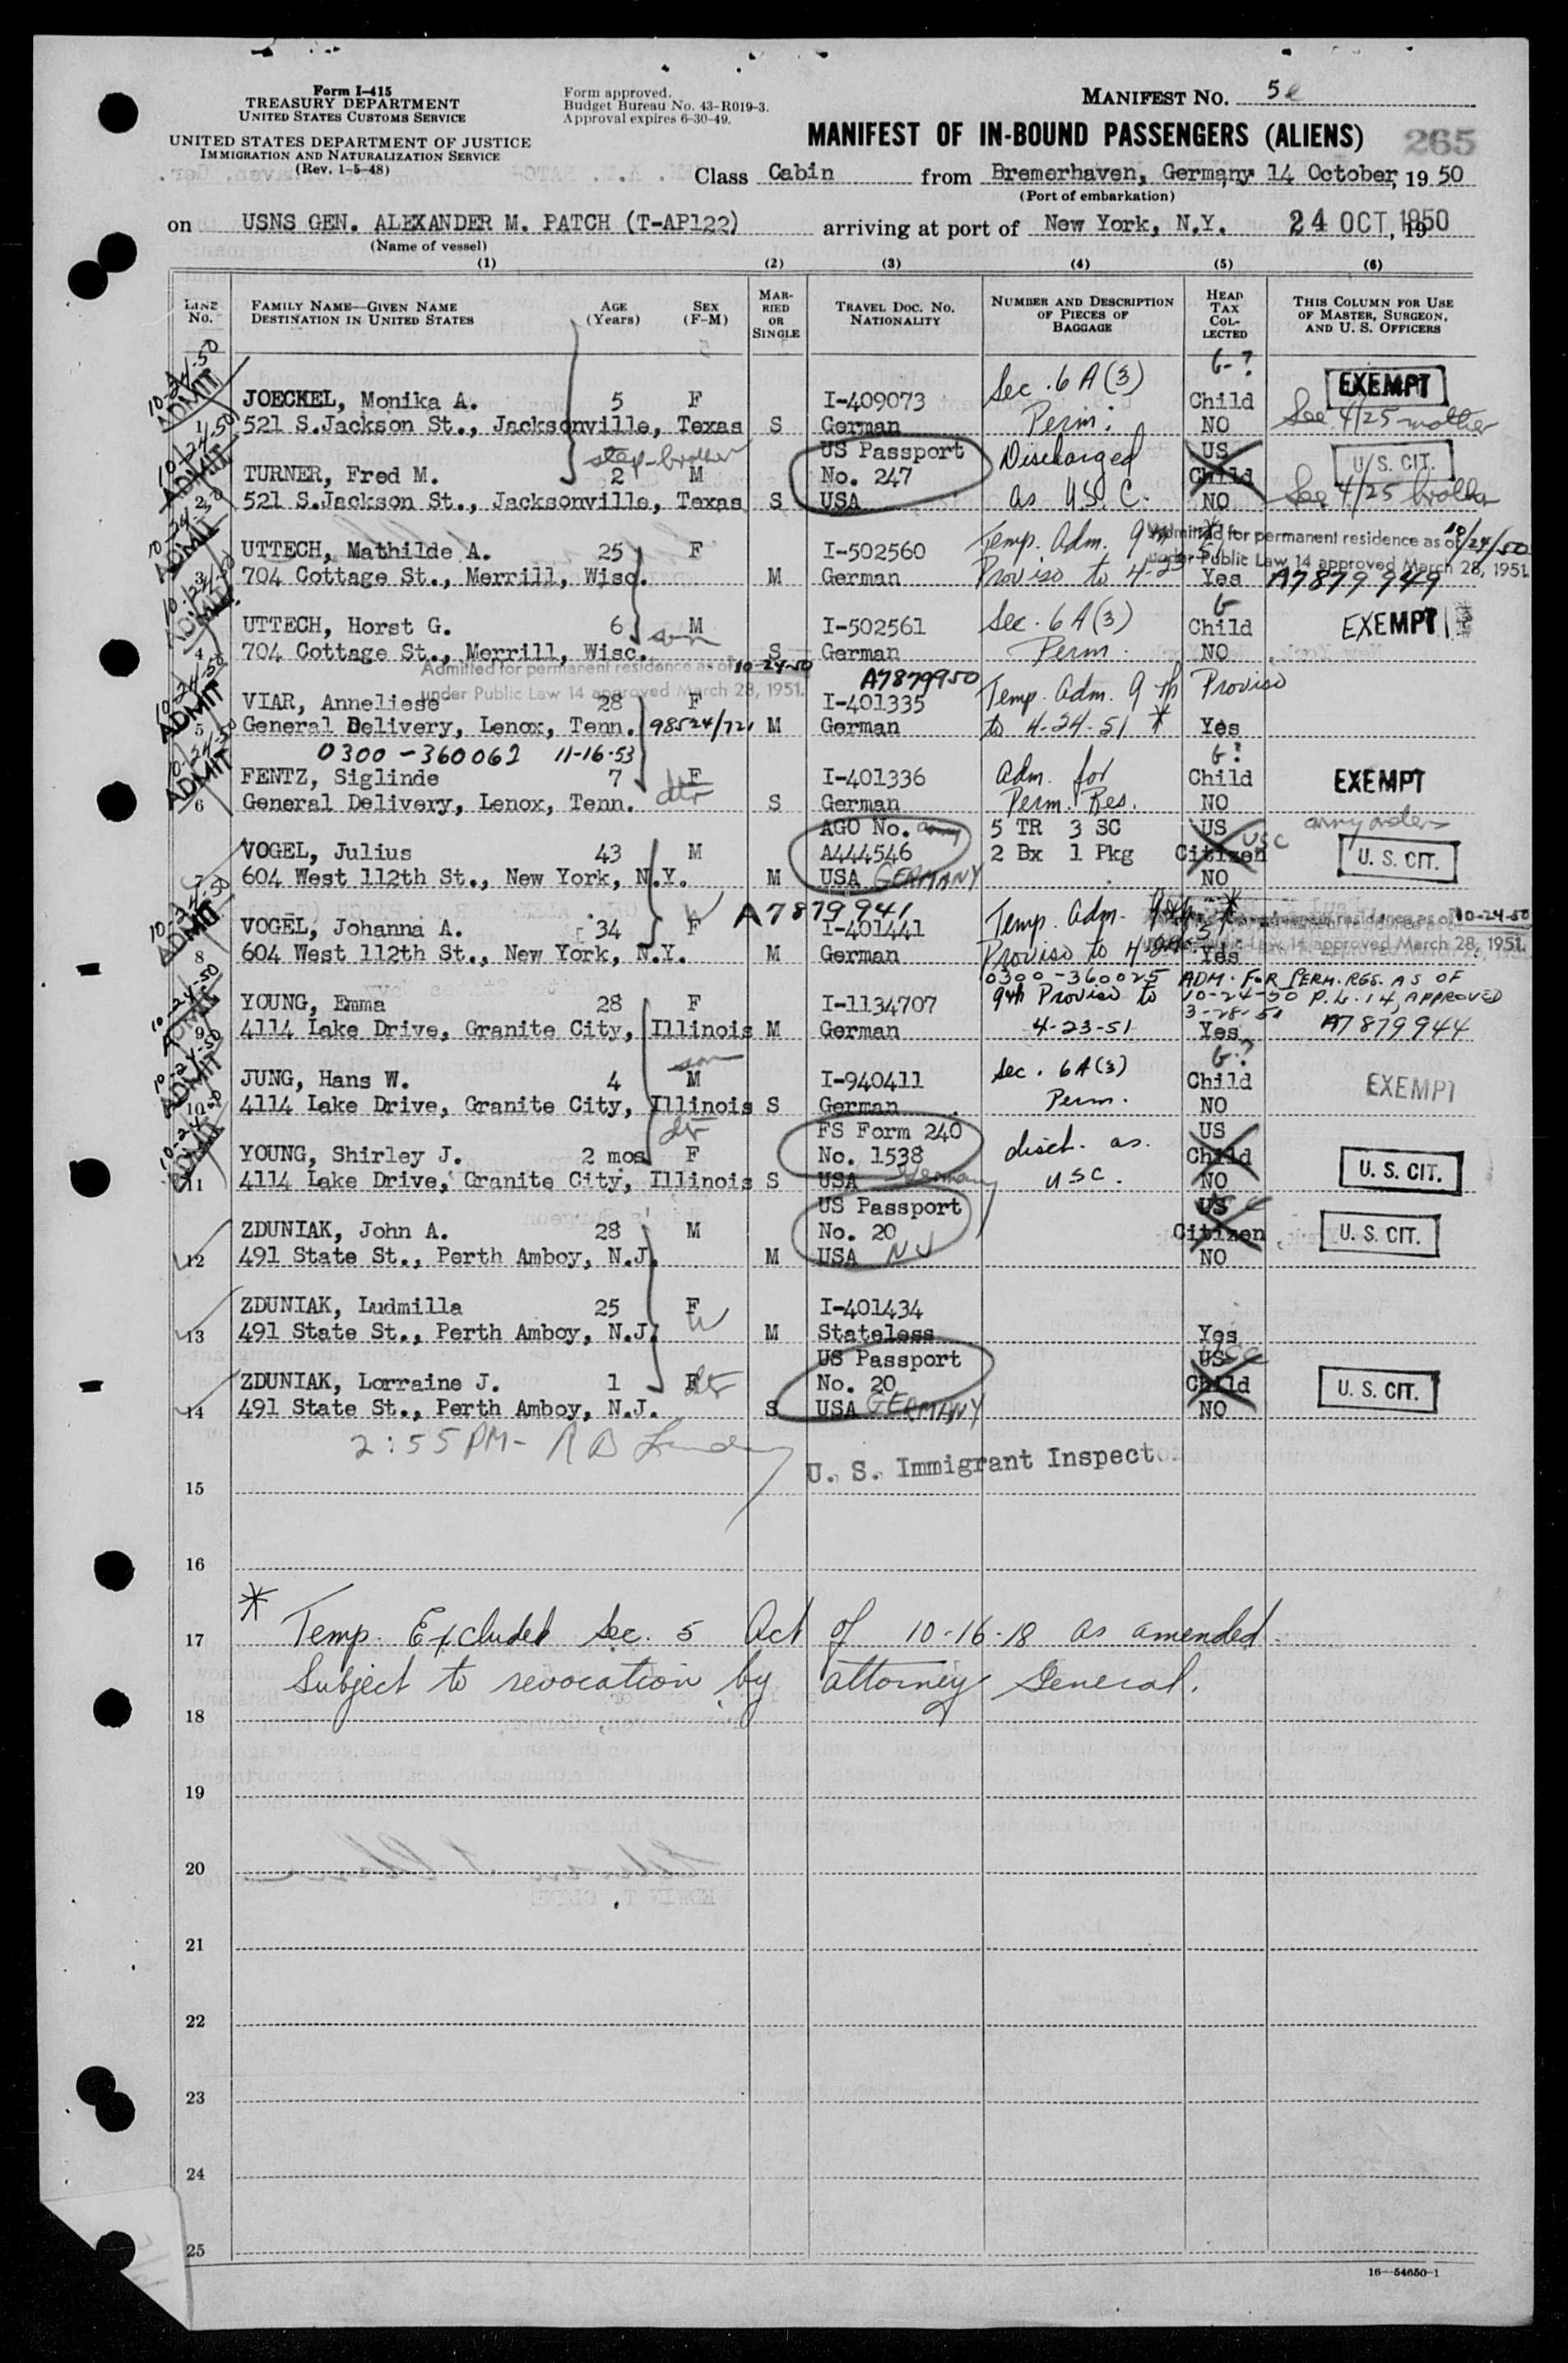 Form I-415
TREASURY DEPARTMENT
UNITED STATES CUSTOMS SERVICE
UNITED STATES DEPARTMENT OF JUSTICE
IMMIGRATION AND NATURALIZATION SERVICE
(Rev. 1-5-48)
Form approved.
Budget Bureau No. 43-R019-3.
Approval expires 6-30-49.
MANIFEST No. 5
MANIFEST OF IN-BOUND PASSENGERS (ALIENS) 265
Class Cabin from Bremerhaven, Germany 14 October, 19 50
(Port of embarkation)
on USNS GEN. ALEXANDER M. PATCH (T-AP122) arriving at port of New York, N.Y. 24 OCT, 1950
(Name of vessel)
(1) (2) (3) (4) (5) (6)
LINE No. FAMILY NAME—GIVEN NAME DESTINATION IN UNITED STATES AGE (Years) SEX (F-M) MARRIED OR SINGLE TRAVEL DOC. NO. NATIONALITY NUMBER AND DESCRIPTION OF PIECES OF BAGGAGE HEAD TAX COLLECTED THIS COLUMN FOR USE OF MASTER, SURGEON, AND U. S. OFFICERS
10-24-50 ADMIT G-?
JOECKEL, Monika A. 5 F I-409073 Sec. 6 A(3) Child EXEMPT
1 521 S.Jackson St., Jacksonville, Texas S German Perm. NO See 4/25 mother
10-24-50 ADMIT step-brother US Passport Discharged US U. S. CIT.
TURNER, Fred M. 2 M No. 247 Child
2 521 S.Jackson St., Jacksonville, Texas S USA as U.S.C. NO See 4/25 brother
10-24-50 ADMIT Admitted for permanent residence as of 10/24/50
UTTECH, Mathilde A. 25 F I-502560 Temp. Adm. 9th under Public Law 14 approved March 28, 1951.
3 704 Cottage St., Merrill, Wisc. M German Proviso to 4-23 Yes A7879949
10-24-50 ADMIT G
UTTECH, Horst G. 6 M son I-502561 Sec. 6A(3) Child EXEMPT
4 704 Cottage St., Merrill, Wisc. S German Perm. NO
Admitted for permanent residence as of 10-24-50 A7879950
under Public Law 14 approved March 28, 1951.
10-24-50 ADMIT
VIAR, Anneliese 28 F I-401335 Temp. Adm. 9th Proviso
5 General Delivery, Lenox, Tenn. 98524/721 M German to 4-24-51 * Yes
0300-360062 11-16-53 G?
10-24-50 ADMIT
FENTZ, Siglinde 7 F dtr I-401336 Adm. for Child EXEMPT
6 General Delivery, Lenox, Tenn. S German Perm. Res. NO
AGO No. Army 5 TR 3 SC US army orders
VOGEL, Julius 43 M A444546 2 Bx 1 Pkg Citizen USC U. S. CIT.
7 604 West 112th St., New York, N.Y. M USA GERMANY NO
A7879941
10-24-50 ADMIT
VOGEL, Johanna A. 34 F W I-401441 Temp. Adm. 9th * permanent residence as of 10-24-50
8 604 West 112th St., New York, N.Y. M German Proviso to Public Law 14 approved March 28, 1951. Yes
0300-360025 ADM. FOR PERM. RES. AS OF
10-24-50 ADMIT
YOUNG, Emma 28 F I-1134707 9th Proviso to 10-24-50 P.L. 14, APPROVED 3-28-51
9 4114 Lake Drive, Granite City, Illinois M German 4-23-51 Yes A7879944
10-24-50 ADMIT son G-?
JUNG, Hans W. 4 M I-940411 Sec. 6A(3) Child EXEMPT
10 4114 Lake Drive, Granite City, Illinois S German Perm. NO
10-24-50 ADMIT dtr FS Form 240 US
YOUNG, Shirley J. 2 mos F No. 1538 disch. as. Child U. S. CIT.
11 4114 Lake Drive, Granite City, Illinois S USA Germany USC. NO
US Passport US
ZDUNIAK, John A. 28 M No. 20 Citizen U. S. CIT.
12 491 State St., Perth Amboy, N.J. M USA NJ NO
ZDUNIAK, Ludmilla 25 F W I-401434
13 491 State St., Perth Amboy, N.J. M Stateless Yes
US Passport US
ZDUNIAK, Lorraine J. 1 F dtr No. 20 Child U. S. CIT.
14 491 State St., Perth Amboy, N.J. S USA GERMANY NO
2:55 PM - R B
U. S. Immigrant Inspector
15
16
*
17 Temp. Excluded Sec. 5 Act of 10-16-18 as amended.
Subject to revocation by attorney General.
18
19
20
21
22
23
24
25
16—54650-1